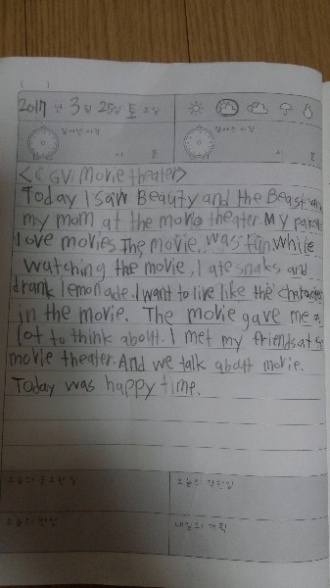 2017 년 3 월 25 일 토 요일
일어난 시각
시 분
시 분
<CGV Movie theater>
Today I saw Beauty and the Beast
my mom at the movie theater. My
love movies The movie, was fun. While
watching the movie, I ate snaks and
drank lemonade. I want to live like the
in the movie. The movie gave me a
lot to think about. I met my friends at
movie theater. And we talk about movie.
Today was happy time.
오늘의 중요한일
오늘의
오늘의 반성
내일의 계획